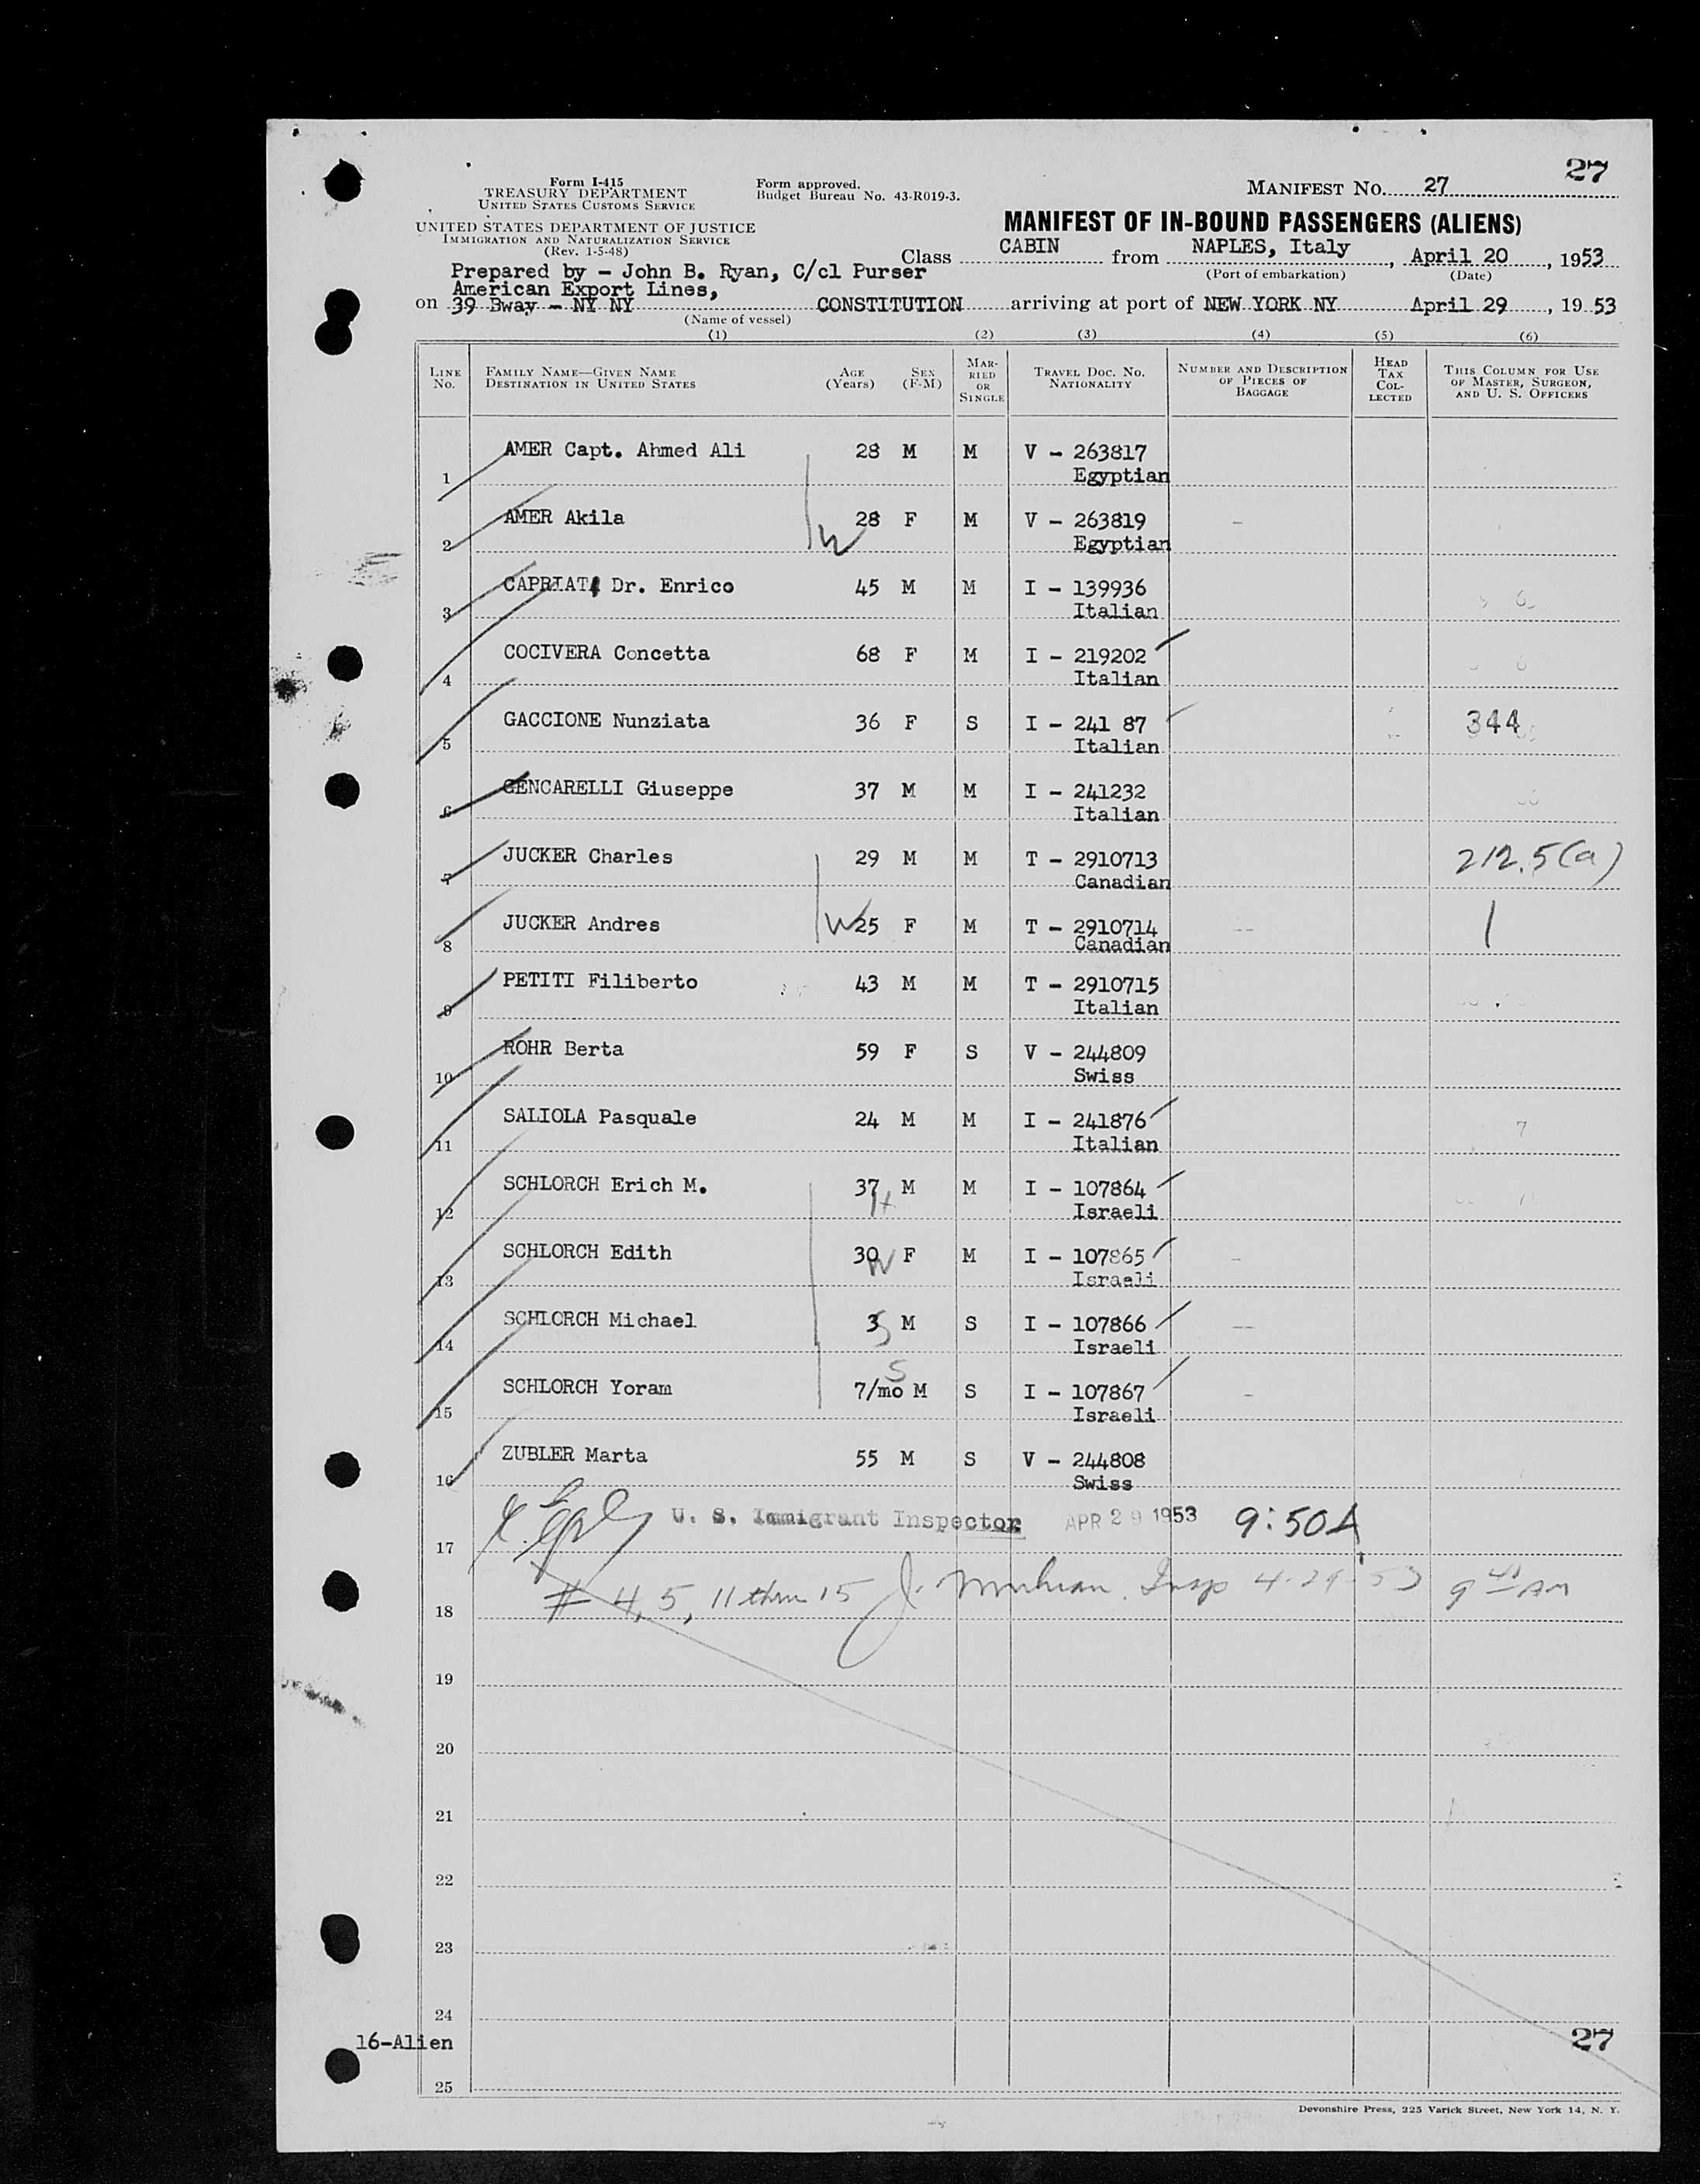 27
Form I-415
TREASURY DEPARTMENT
UNITED STATES CUSTOMS SERVICE
Form approved.
Budget Bureau No. 43-R019-3.
MANIFEST NO. 27
UNITED STATES DEPARTMENT OF JUSTICE
IMMIGRATION AND NATURALIZATION SERVICE
(Rev. 1-5-48)
MANIFEST OF IN-BOUND PASSENGERS (ALIENS)
Class CABIN from NAPLES, Italy, April 20, 1953
(Port of embarkation) (Date)
Prepared by - John B. Ryan, C/cl Purser
American Export Lines,
on 39 Bway - NY NY CONSTITUTION arriving at port of NEW YORK NY April 29, 1953
(Name of vessel)
(1) (2) (3) (4) (5) (6)
LINE No. FAMILY NAME—GIVEN NAME DESTINATION IN UNITED STATES AGE (Years) SEX (F-M) MARRIED OR SINGLE TRAVEL DOC. NO. NATIONALITY NUMBER AND DESCRIPTION OF PIECES OF BAGGAGE HEAD TAX COLLECTED THIS COLUMN FOR USE OF MASTER, SURGEON, AND U. S. OFFICERS
1 AMER Capt. Ahmed Ali 28 M M V - 263817
Egyptian
2 AMER Akila W 28 F M V - 263819
Egyptian
3 CAPRIATI Dr. Enrico 45 M M I - 139936
Italian
4 COCIVERA Concetta 68 F M I - 219202
Italian
5 GACCIONE Nunziata 36 F S I - 241 87 344
Italian
6 GENCARELLI Giuseppe 37 M M I - 241232
Italian
7 JUCKER Charles 29 M M T - 2910713 212.5(a)
Canadian
8 JUCKER Andres W 25 F M T - 2910714
Canadian
9 PETITI Filiberto 43 M M T - 2910715
Italian
10 ROHR Berta 59 F S V - 244809
Swiss
11 SALIOLA Pasquale 24 M M I - 241876
Italian
12 SCHLORCH Erich M. 37 H M M I - 107864
Israeli
13 SCHLORCH Edith 30 W F M I - 107865
Israeli
14 SCHLORCH Michael 3 S M S I - 107866
Israeli
15 SCHLORCH Yoram 7/mo S M S I - 107867
Israeli
16 ZUBLER Marta 55 M S V - 244808
Swiss
U. S. Immigrant Inspector APR 29 1953 9:50A
17
18 # 4, 5, 11 thru 15 J. Insp 4-29-53 9 AM
19
20
21
22
23
24
16-Alien
27
25
Devonshire Press, 225 Varick Street, New York 14, N. Y.